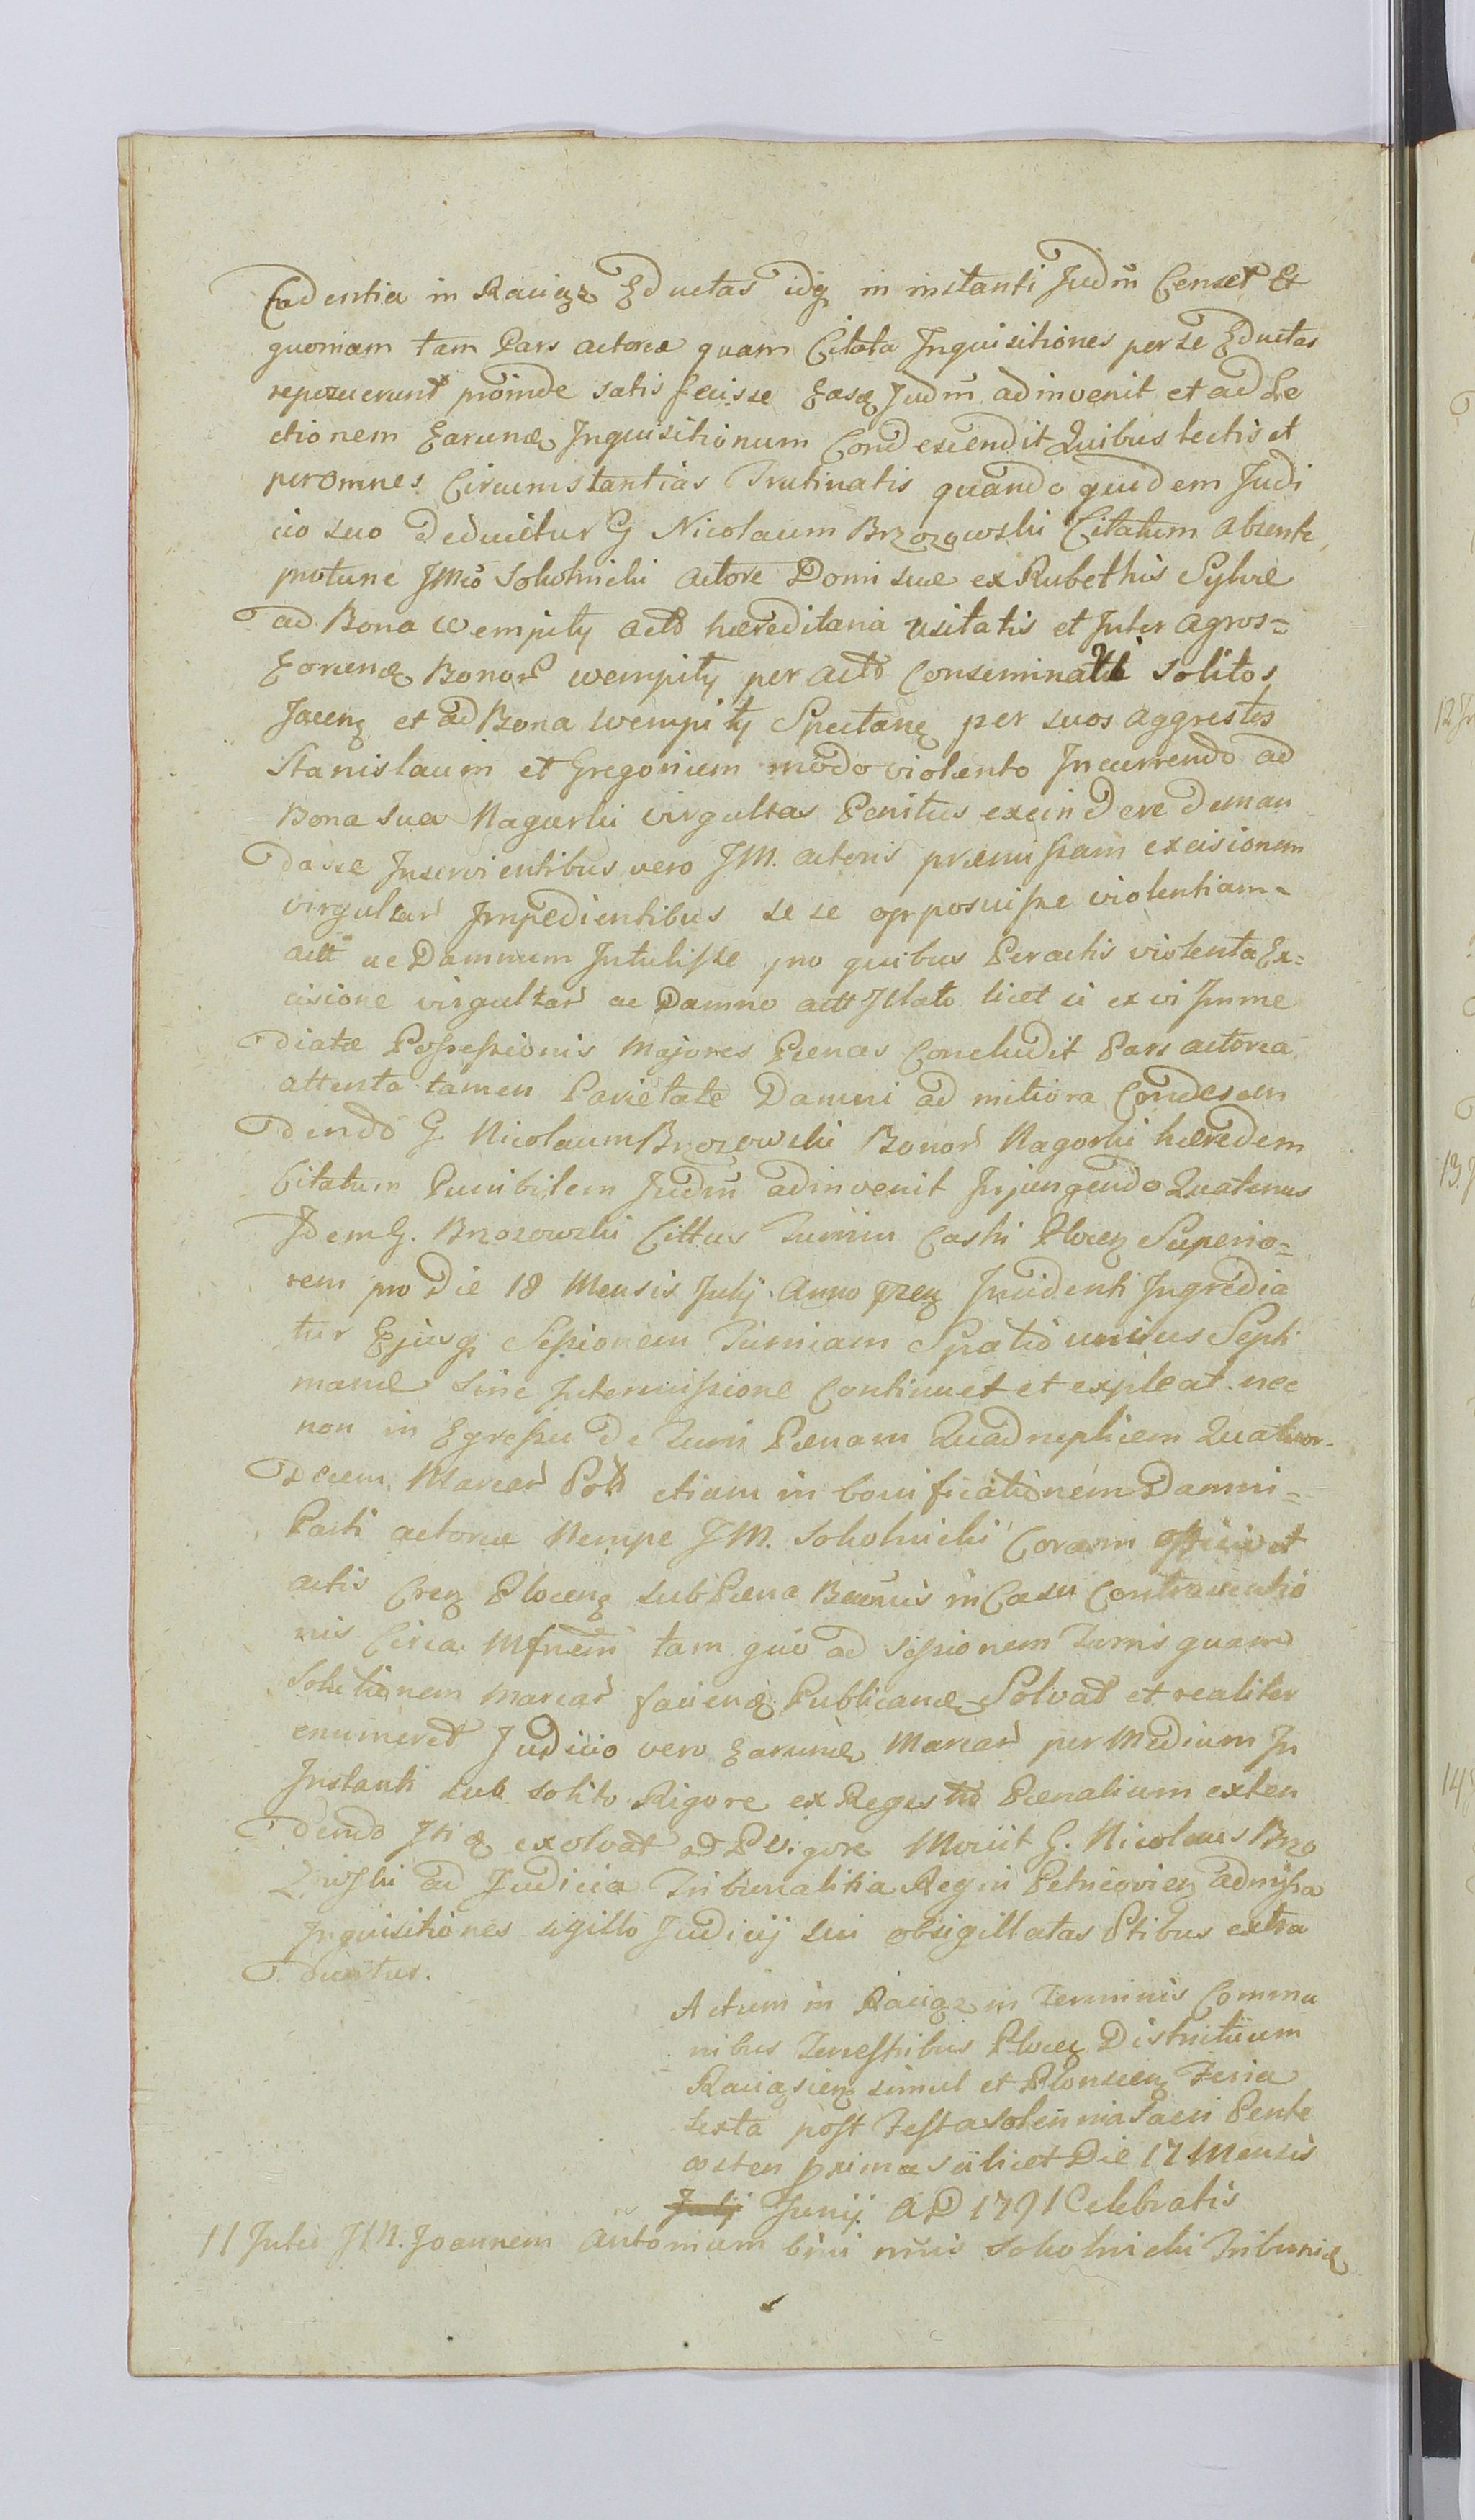 Cadentia in Raciąż Eductas idq in instanti Judm Censet Et
quoniam tam Pars actorea quam Citata Inquisitiones per se Eductas
reposuerunt proinde satis fecisse Easq Judm adinvenit et ad Le
ctionem Earunq Inquisitionum Condescendit Quibus lectis et
per omnes Circumstantias Trutinatis quando quidem Judi
cio suo Deducitur G Nicolaum Brzozowski Citatum absente
protunc JMco Sokolnicki actore Domi suæ ex Rubethis Sylvæ
ad Bona Wempiły hæreditaria usitatis et Inter agros=
Earunq Bonor Wempiły per Conseminati solitos
Jacenq et ad Bona Wempiły Spectanq per suos aggrestes
Stanislaum et Gregorium modo violento Incurrendo ad
Bona sua Nagurki virgultas Penitus exeindere deman
dasse Inservientibus vero JM. actoris præmissam excisionem
virgultar Impedientibus se se opposuisse violentiam=
actt ac Damnum Intulisse pro quibus Peractis violenta Ex=
cisione virgultar ac Damno actt Illato licet ex vi Imme
diatæ Possessionis Majores Pænas Concludit Pars actorea
attenta tamen Parietate Damni ad mitiora Condescen
dendo G. Nicolaum Brzozowski Bonor Nagorki hæredem
Citatum Punibilem Judm adinvenit Injungendo Quatenus
Idem G. Brzozowski Cittus Turrim Castri Plocen Superio=
rem pro Die 18 Mensis Julij Anno præn Incidenti Ingredia
tur Ejusq Sessionem Turriam Spatio unius Septi
manæ sine Intermissione Continuet et expleat nec
non in Egressu de Turri Pænam Quadruplicem Quatuor=
Decem Marcar etiam in bonificationem Damni=
Parti actoreæ Nempe JM. Sokolnicki Coram officio et
actis Plocenq sub Pæna Bannis in Casu Contraventio
nis Circa tam quo ad Sessionem Turris quam
Solutionem Marcar facienq Publicanæ Solvat et realiter
enumeret Judicio vero Earunq Marcar per Medium In
Instanti sub solito Rigore ex Regestro Pænalium exten
dendo exolvat Movit G. Nicolaus Brzo
zowski ad Judicia Tribunalitia Regni Petricovien admissa
Inquisitiones sigillo Judicij sui obsigillatas Ptibus extra
duntur.
Actum in Raciąż in Terminis Commu
nibus Terrestribus Plocen Districtuum
Raciąsien simul et Plonscen Feria
sexta post Festa solennia Sacri Pente
costen prima scilicet Die 17 Mensis
Julij Junij AD 1791 Celebratis
11 Inter JM. Joannem Antonium Sokolnicki Tribunid